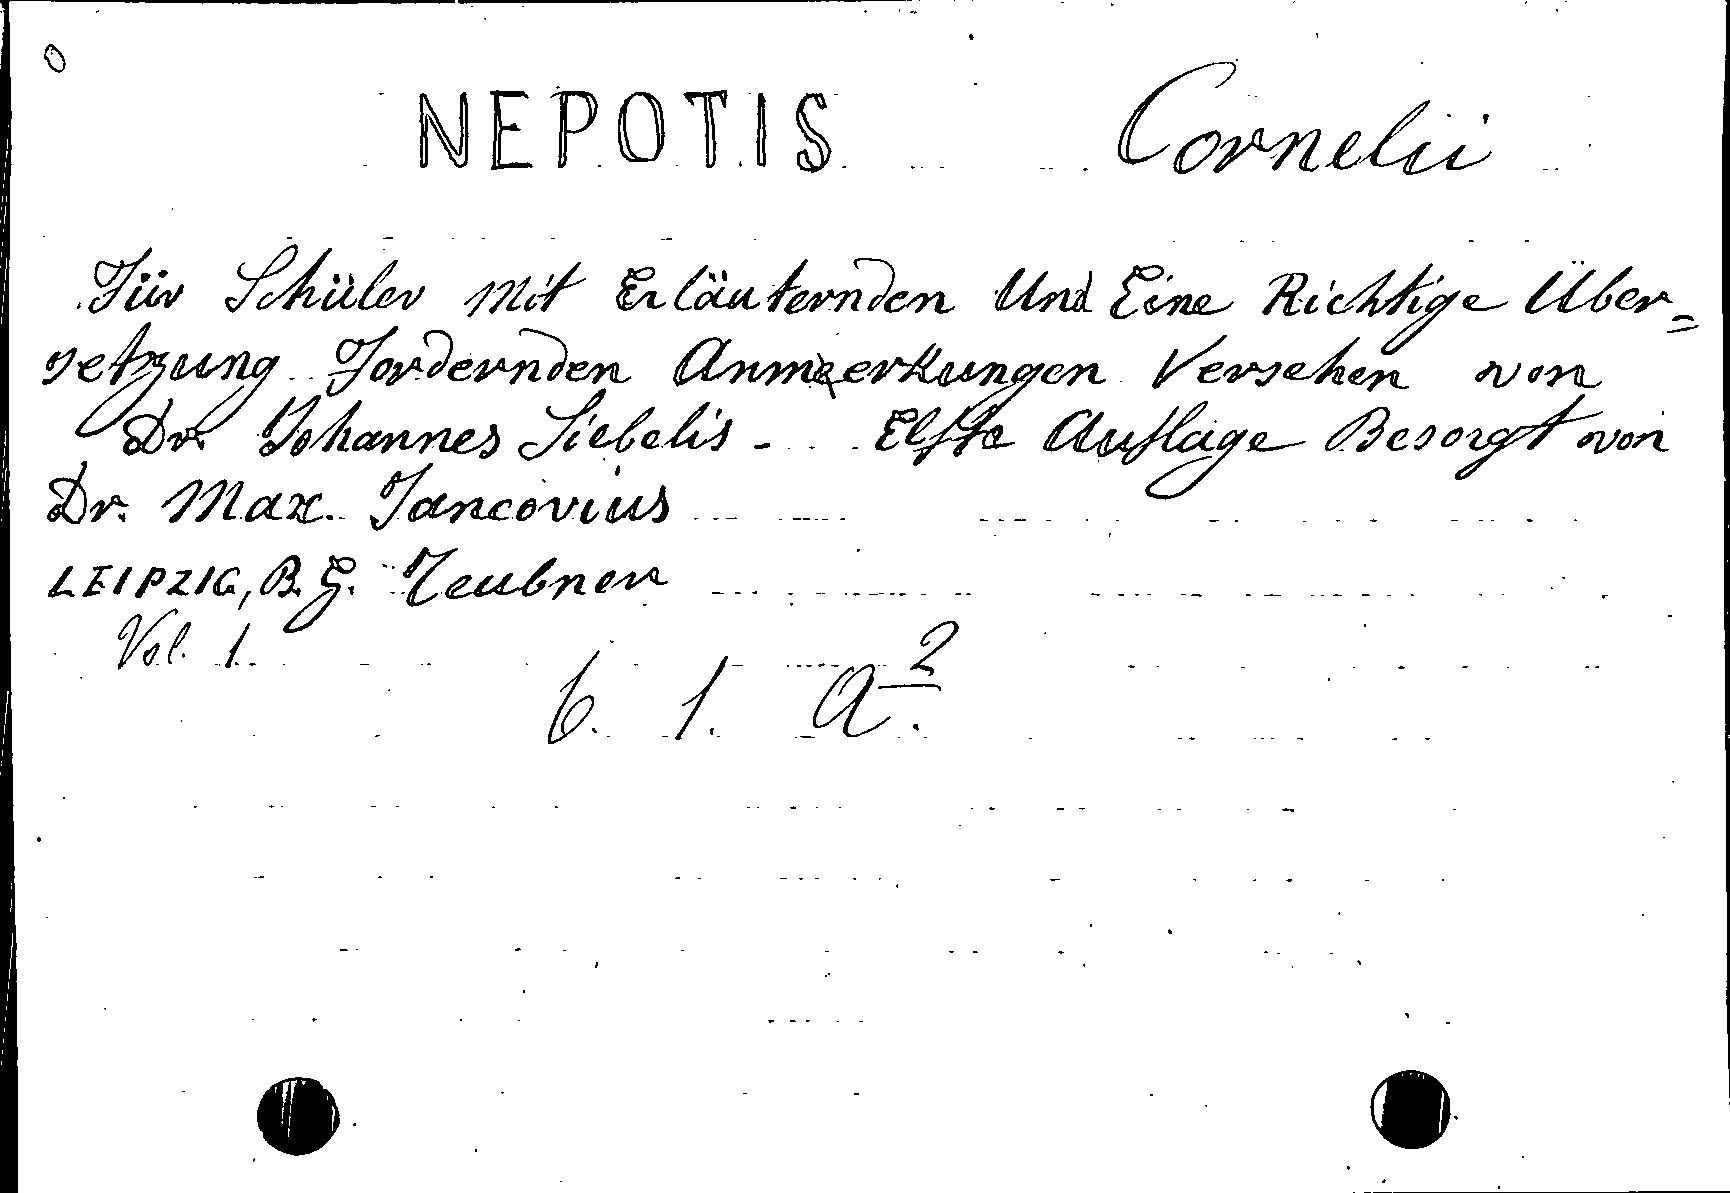 NEPOTIS Cornelii
Für Schüler Mit Erläuternden Und Eine Richtige Über=
setzung Fordernden Anmerkungen Versehen von
Dr. Johannes Siebelis - Elfte Auflage Besorgt von
Dr. Max. Jancovius
LEIPZIG, B. G. Teubner
Vol. 1
6. 1. a2.